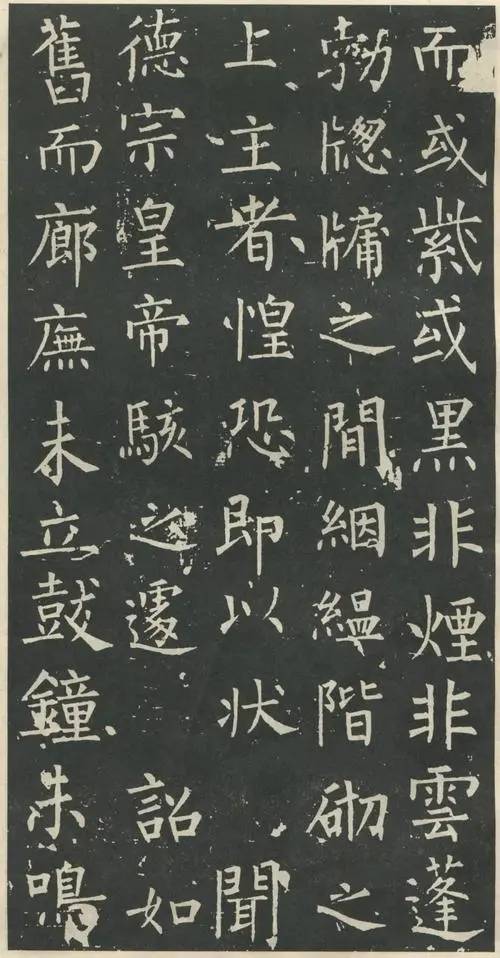 而或紫或黑非煙非雲蓬
勃牕牖之間絪縕階砌之
上主者惶恐即以状 聞
德宗皇帝駭之遽 詔如
舊而廊廡未立鼓鐘未鳴